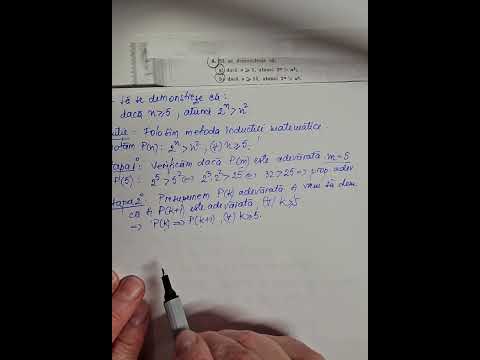 4. Să se demonstreze că:
a) dacă n ≥ 5, atunci 2ⁿ > n²;
b) dacă n ≥ 10, atunci 2ⁿ > n³.
să se demonstreze că:
dacă n≥5, atunci 2ⁿ>n²
Folosim metoda inducției matematice.
P(n): 2ⁿ>n², (∀) n≥5.
Etapa 1° Verificăm dacă P(n) este adevărată n=5
P(5): 2⁵>5² ⇔ 2³·2²>25 ⇔ 32>25 ⇒ prop. adev
Etapa 2° Presupunem P(k) adevărată și vrem să dem.
că și P(k+1) este adevărată, (∀) k≥5
⇒ P(k) ⇒ P(k+1), (∀) k≥5.